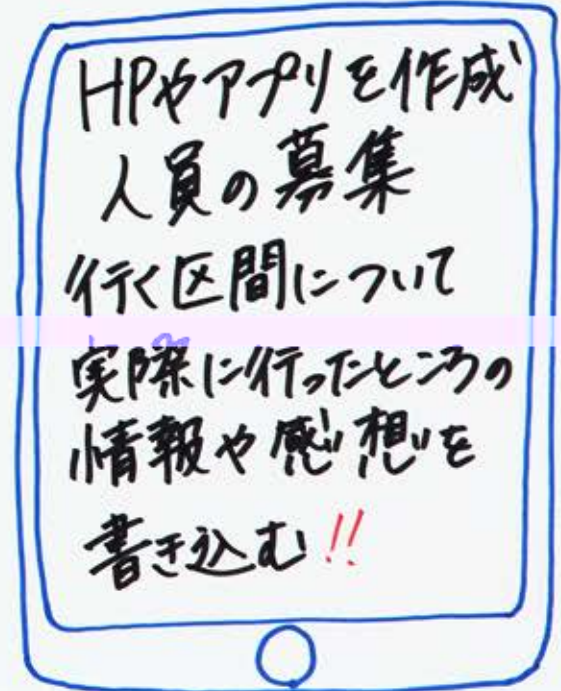 HPやアプリを作成
人員の募集
行く区間について
実際に行ったところの
情報や感想を
書き込む!!